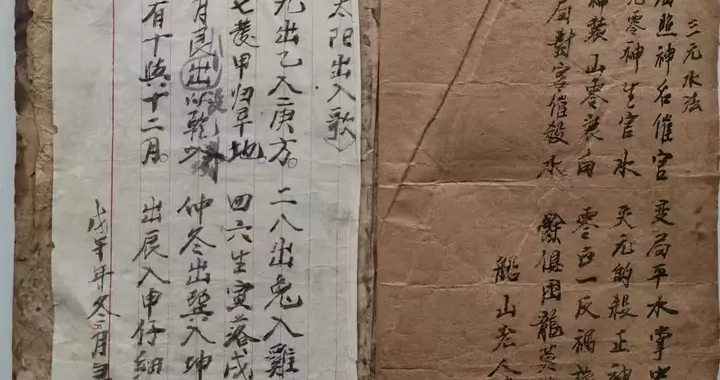 三元水法
照神名催官 变局平水掌中
元零神生官水 失元的殺正神
神裝山零裝向 零正一反禍
局對宮催殺水 餘俱困龍莫
船山老人
太阳出入歌
九出乙入庚方。二八出兔入雞
七發甲归辛地。四六生寅落戌
月艮出以乾 仲冬出巽入坤
有十與十二月。出辰入申仔細
戊午年冬月